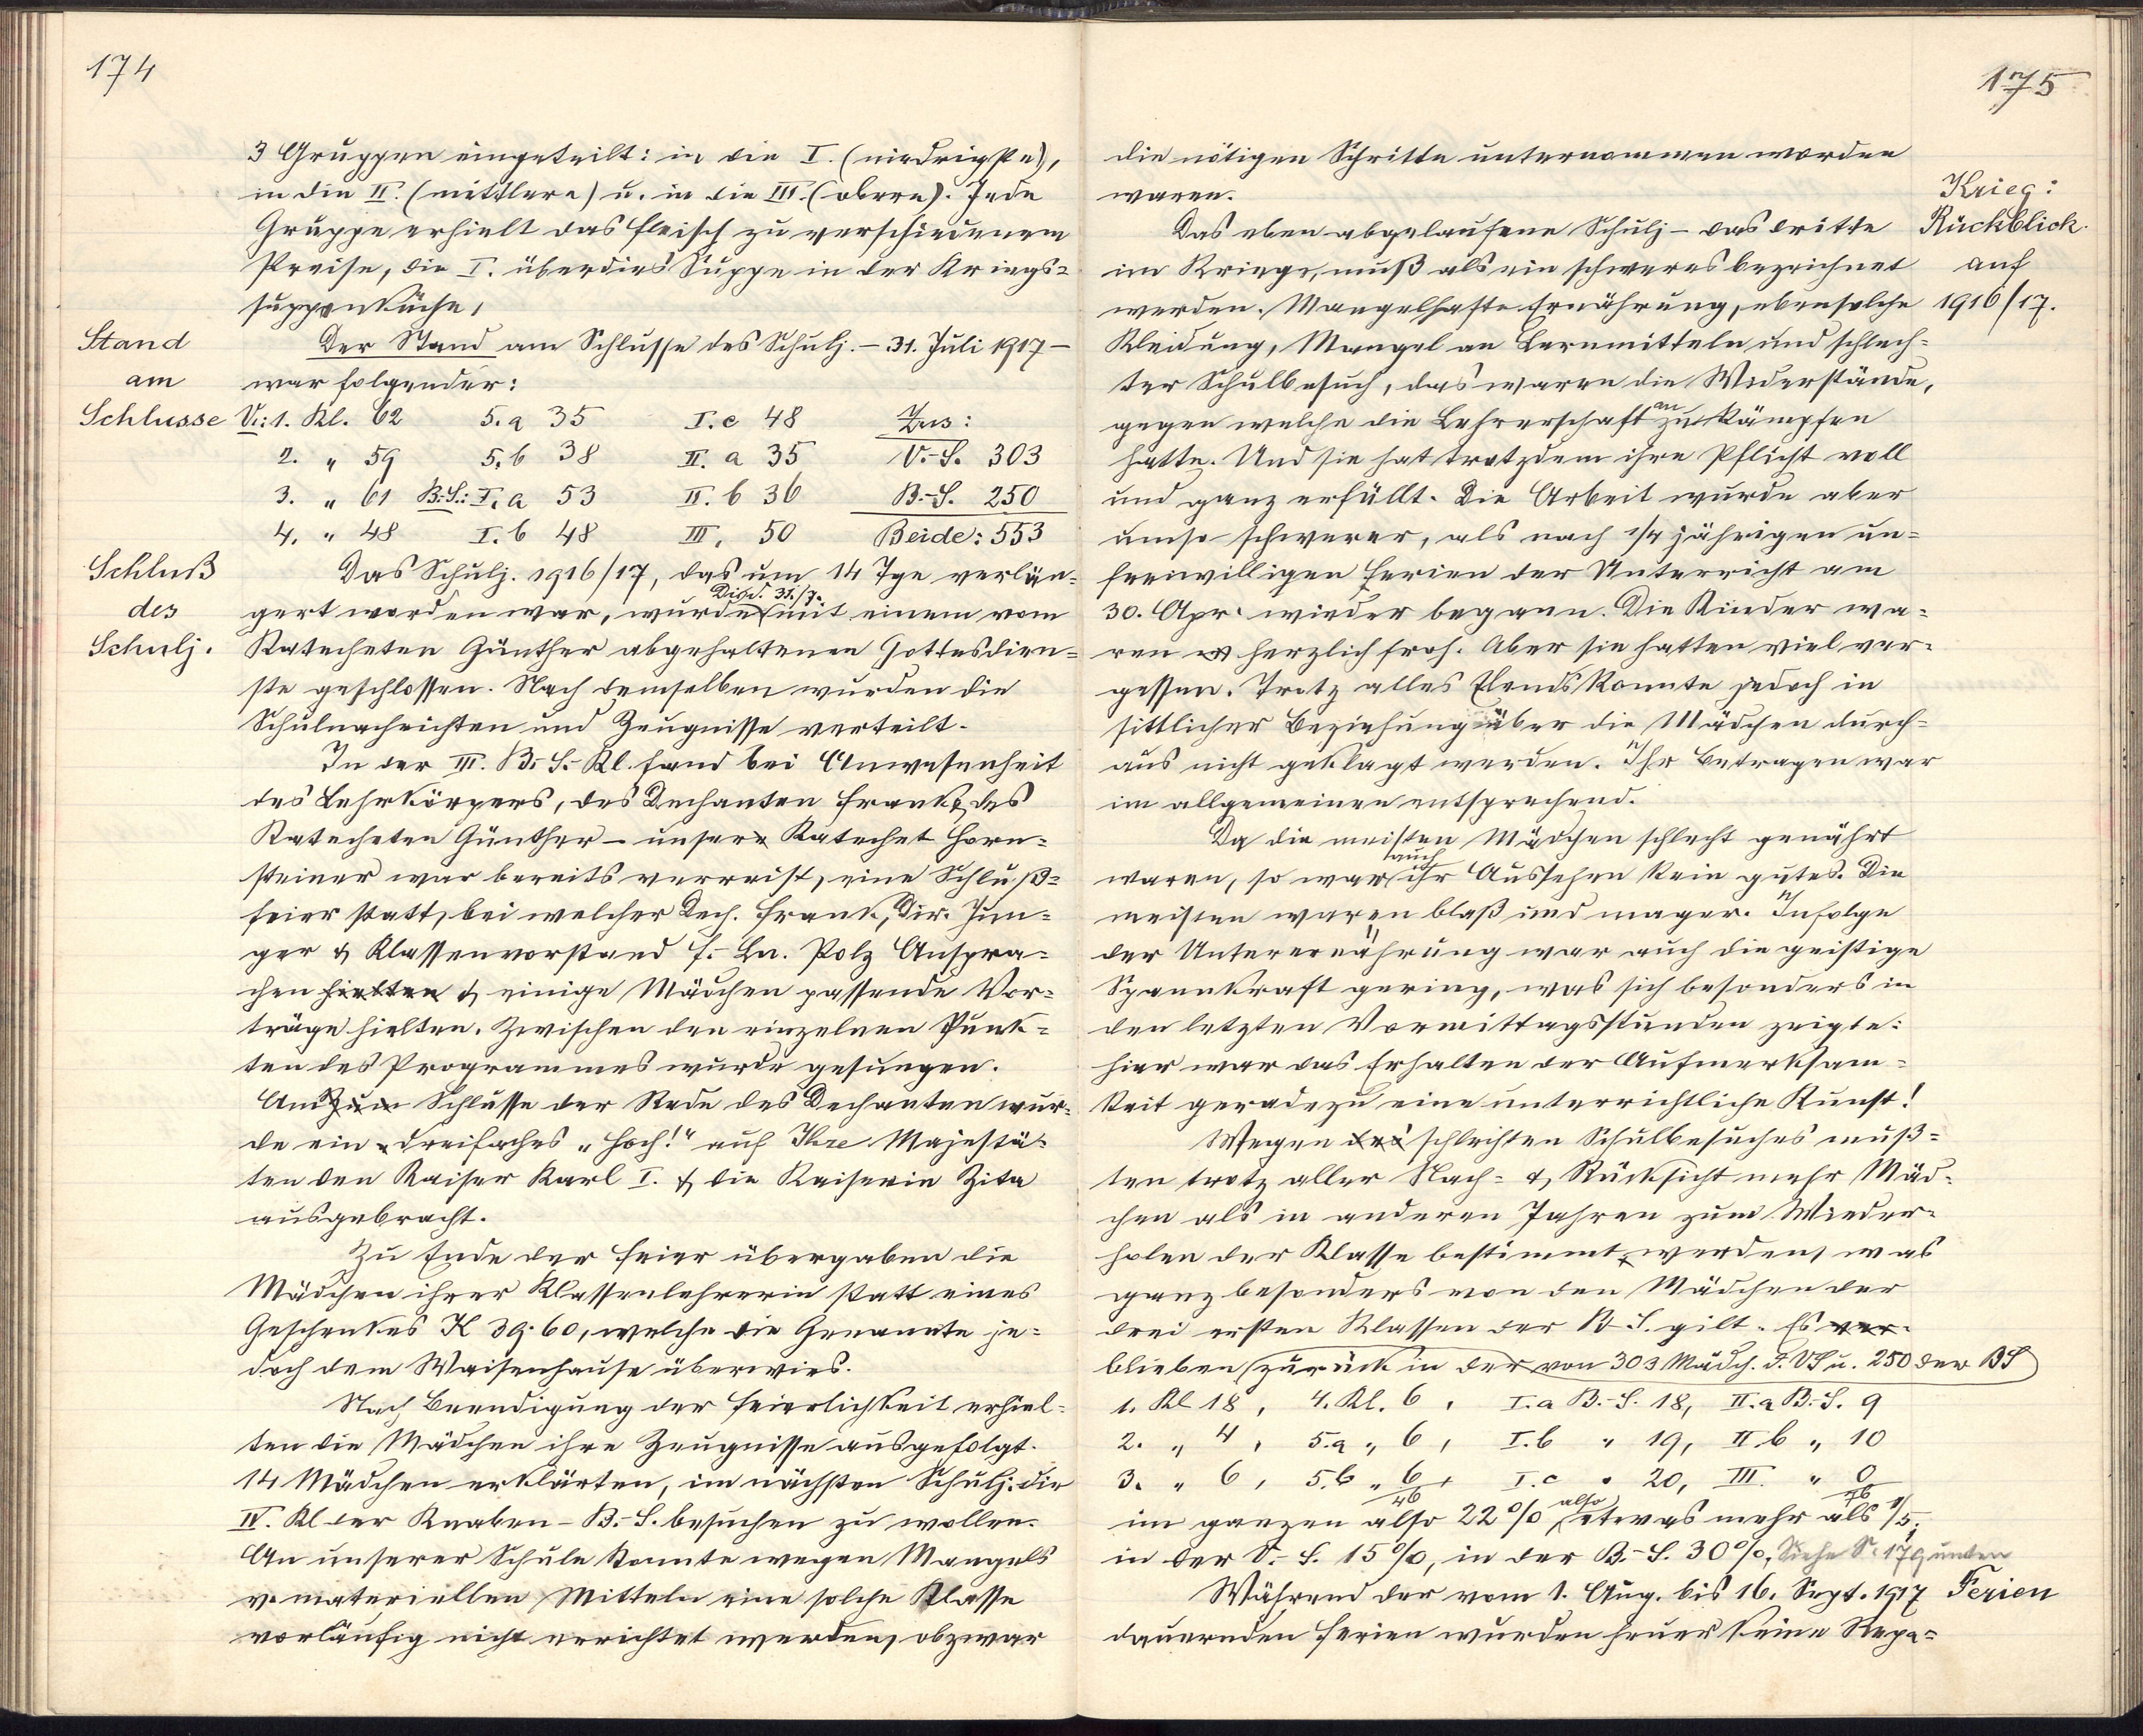 174
3 Gruppen eingeteilt: in die I. (niedrigste),
in die II. (mittlere) u. in die III. (obere). Jede
Gruppe erhielt das Fleisch zu verschiedenem
Preise, die I. überdies Suppe in der Kriegs=
suppenküche.
Stand
am
Schlusse
Der Stand am Schlusse des Schulj. – 31. Juli 1917 –
war folgender:
V.: 1. Kl. 62 5. a 35 I. c 48 Zus:
2. " 59 5. b 38 II. a 35 V.-S. 303
3. " 61 B.-S.: I. a 53 II. b 36 B.-S. 250
4. " 48 I. b 48 III. 50 Beide: 553
Schluß
des
Schulj.
Das Schulj. 1916/17, das um 14 Tge verlän=
gert worden war, wurde Di. d. 31./7. mit einem vom
Katecheten Günther abgehaltenen Gottesdien=
ste geschlossen. Nach demselben wurden die
Schulnachrichten und Zeugnisse verteilt.
In der III. B.-S.-Kl. fand bei Anwesenheit
des Lehrkörpers, des Dechanten Frank & des
Katecheten Günther – unser Katechet Horn=
steiner war bereits verreist, eine Schluß=
feier statt, bei welcher Dech. Frank, Dir. Jun=
ger & Klassenvorstand F.-Ln. Polz Anspra=
chen hielten & einige Mädchen passende Vor=
träge hielten. Zwischen den einzelnen Punk=
ten des Programmes wurde gesungen.
Am Zum Schlusse der Rede des Dechanten wur=
de ein dreifaches „Hoch!" auf Ihre Majestä=
ten den Kaiser Karl I. & die Kaiserin Zita
ausgebracht.
Zu Ende der Feier übergaben die
Mädchen ihrer Klassenlehrerin statt eines
Geschenkes K 39·60, welche die Genannte je=
doch dem Waisenhause überwies.
Nach Beendigung der Feierlichkeit erhiel=
ten die Mädchen ihre Zeugnisse ausgefolgt.
14 Mädchen erklärten, im nächsten Schulj. die
IV. Kl der Knaben-B.-S. besuchen zu wollen.
An unserer Schule konnte wegen Mangels
v. materiellen Mitteln eine solche Klasse
vorläufig nicht errichtet werden, obzwar
175
die nötigen Schritte unternommen worden
waren.
Krieg:
Rückblick
auf
1916/17.
Das eben abgelaufene Schulj – das dritte
im Kriege, muß als ein schweres bezeichnet
werden. Mangelhafte Ernährung, ebensolche
Kleidung, Mangel an Lernmitteln und schlech=
ter Schulbesuch, das waren die Widerstände,
gegen welche die Lehrerschaft anzukämpfen
hatte. Und sie hat trotzdem ihre Pflicht voll
und ganz erfüllt. Die Arbeit wurde aber
umso schwerer, als nach 1/4 jährigen un=
freiwilligen Ferien der Unterricht am
30. Apr. wieder begann. Die Kinder wa=
ren herzlich froh. Aber sie hatten viel ver=
gessen. Trotz alles Elends konnte jedoch in
sittlicher Beziehung über die Mädchen durch=
aus nicht geklagt werden. Ihr Betragen war
im allgemeinen entsprechend.
Da die meisten Mädchen schlecht genährt
waren, so war auch ihr Aussehen kein gutes. Die
meisten waren blaß und mager. Infolge
der Unterernährung war auch die geistige
Spannkraft gering, was sich besonders in
den letzten Vormittagsstunden zeigte:
hier war das Erhalten der Aufmerksam=
keit geradezu eine unterrichtliche Kunst!
Wegen des schlechten Schulbesuches muß=
ten trotz aller Nach- & Rücksicht mehr Mäd=
chen als in anderen Jahren zum Wieder=
holen der Klasse bestimmt werden, was
ganz besonders von den Mädchen der
drei ersten Klassen der B-S. gilt. Es ver=
blieben zurück in der von 303 Mädch. d. VS u. 250 der BS
1. Kl 18, 4. Kl. 6, I. a B.-S. 18, II. a B.-S. 9
2. " 4, 5. a " 6, I. b " 19, II b " 10
3. " 6, 5. b " 6, I. c " 20, III. " 0
46 76
im ganzen also 22%, also etwas mehr als 1/5;
in der V.-S. 15%, in der B.-S. 30%. Siehe S. 179 unten
Ferien
Während der vom 1. Aug. bis 16. Sept. 1917
dauernden Ferien wurden heuer keine Repa=